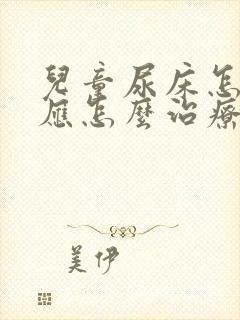 兒童尿床怎
應怎麼治療
美伊